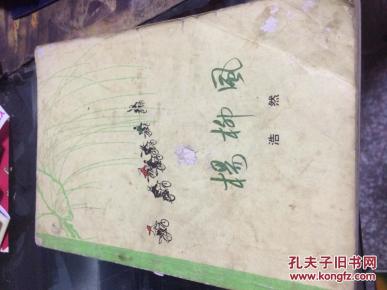 杨柳风
浩然
孔夫子旧书网
www.kongfz.com